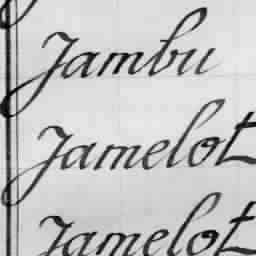 Jambu
Jamelot
Jamelot